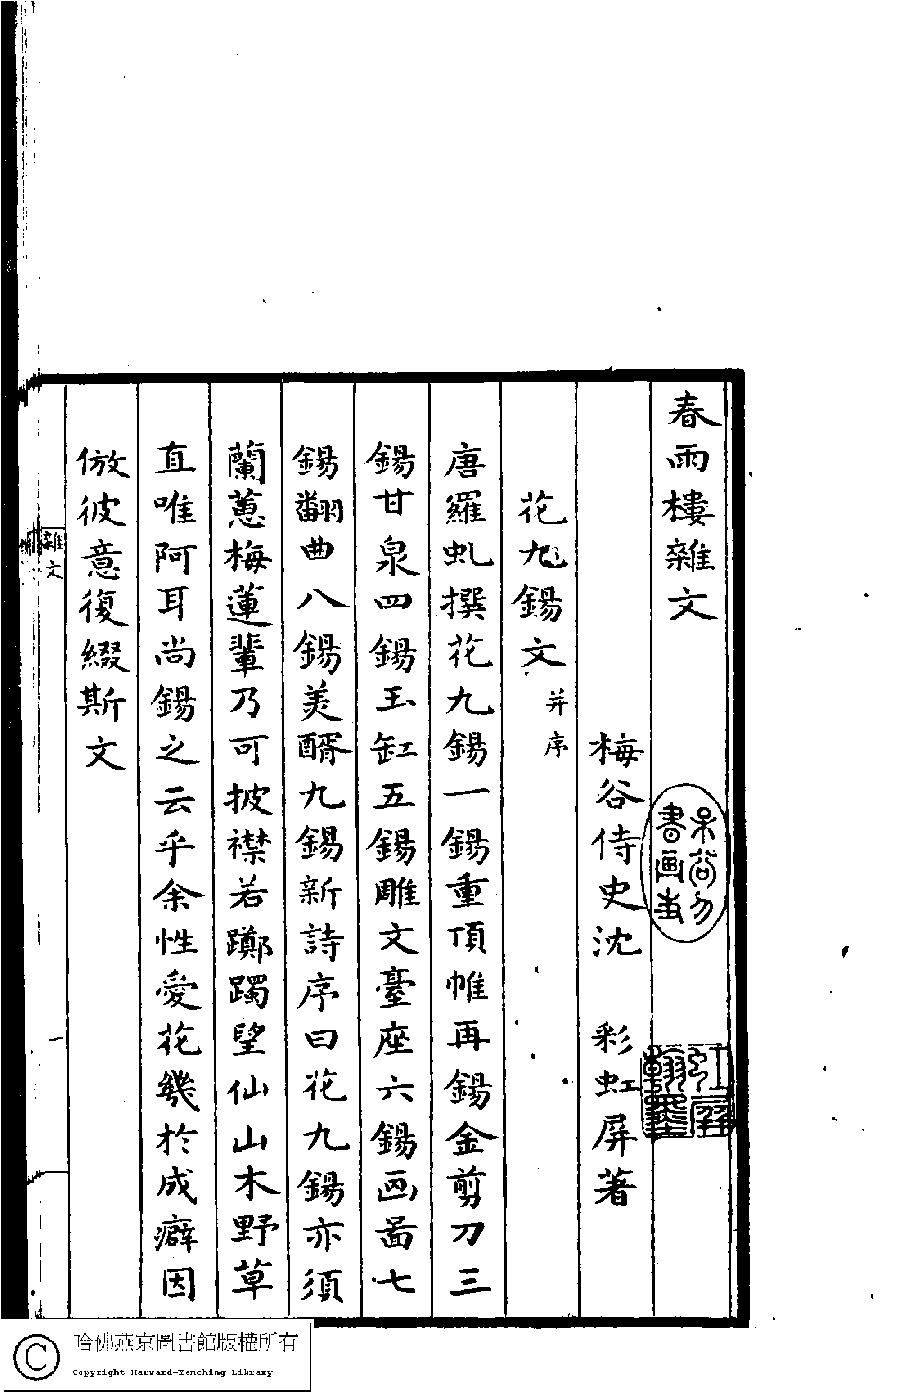 春雨樓雜文
梅谷侍史沈 彩虹屏著
花九錫文 并序
唐羅虬撰花九錫一錫重頂帷再錫金剪刀三
錫甘泉四錫玉缸五錫雕文臺座六錫画啚七
錫翻曲八錫美醑九錫新詩序曰花九錫亦須
蘭蕙梅蓮輩乃可披襟若躑躅望仙山木野草
直唯阿耳尚錫之云乎余性愛花幾於成癖因
倣彼意復綴斯文
雜文
哈佛燕京圖書館版權所有
Copyright Harvard-Yenching Library